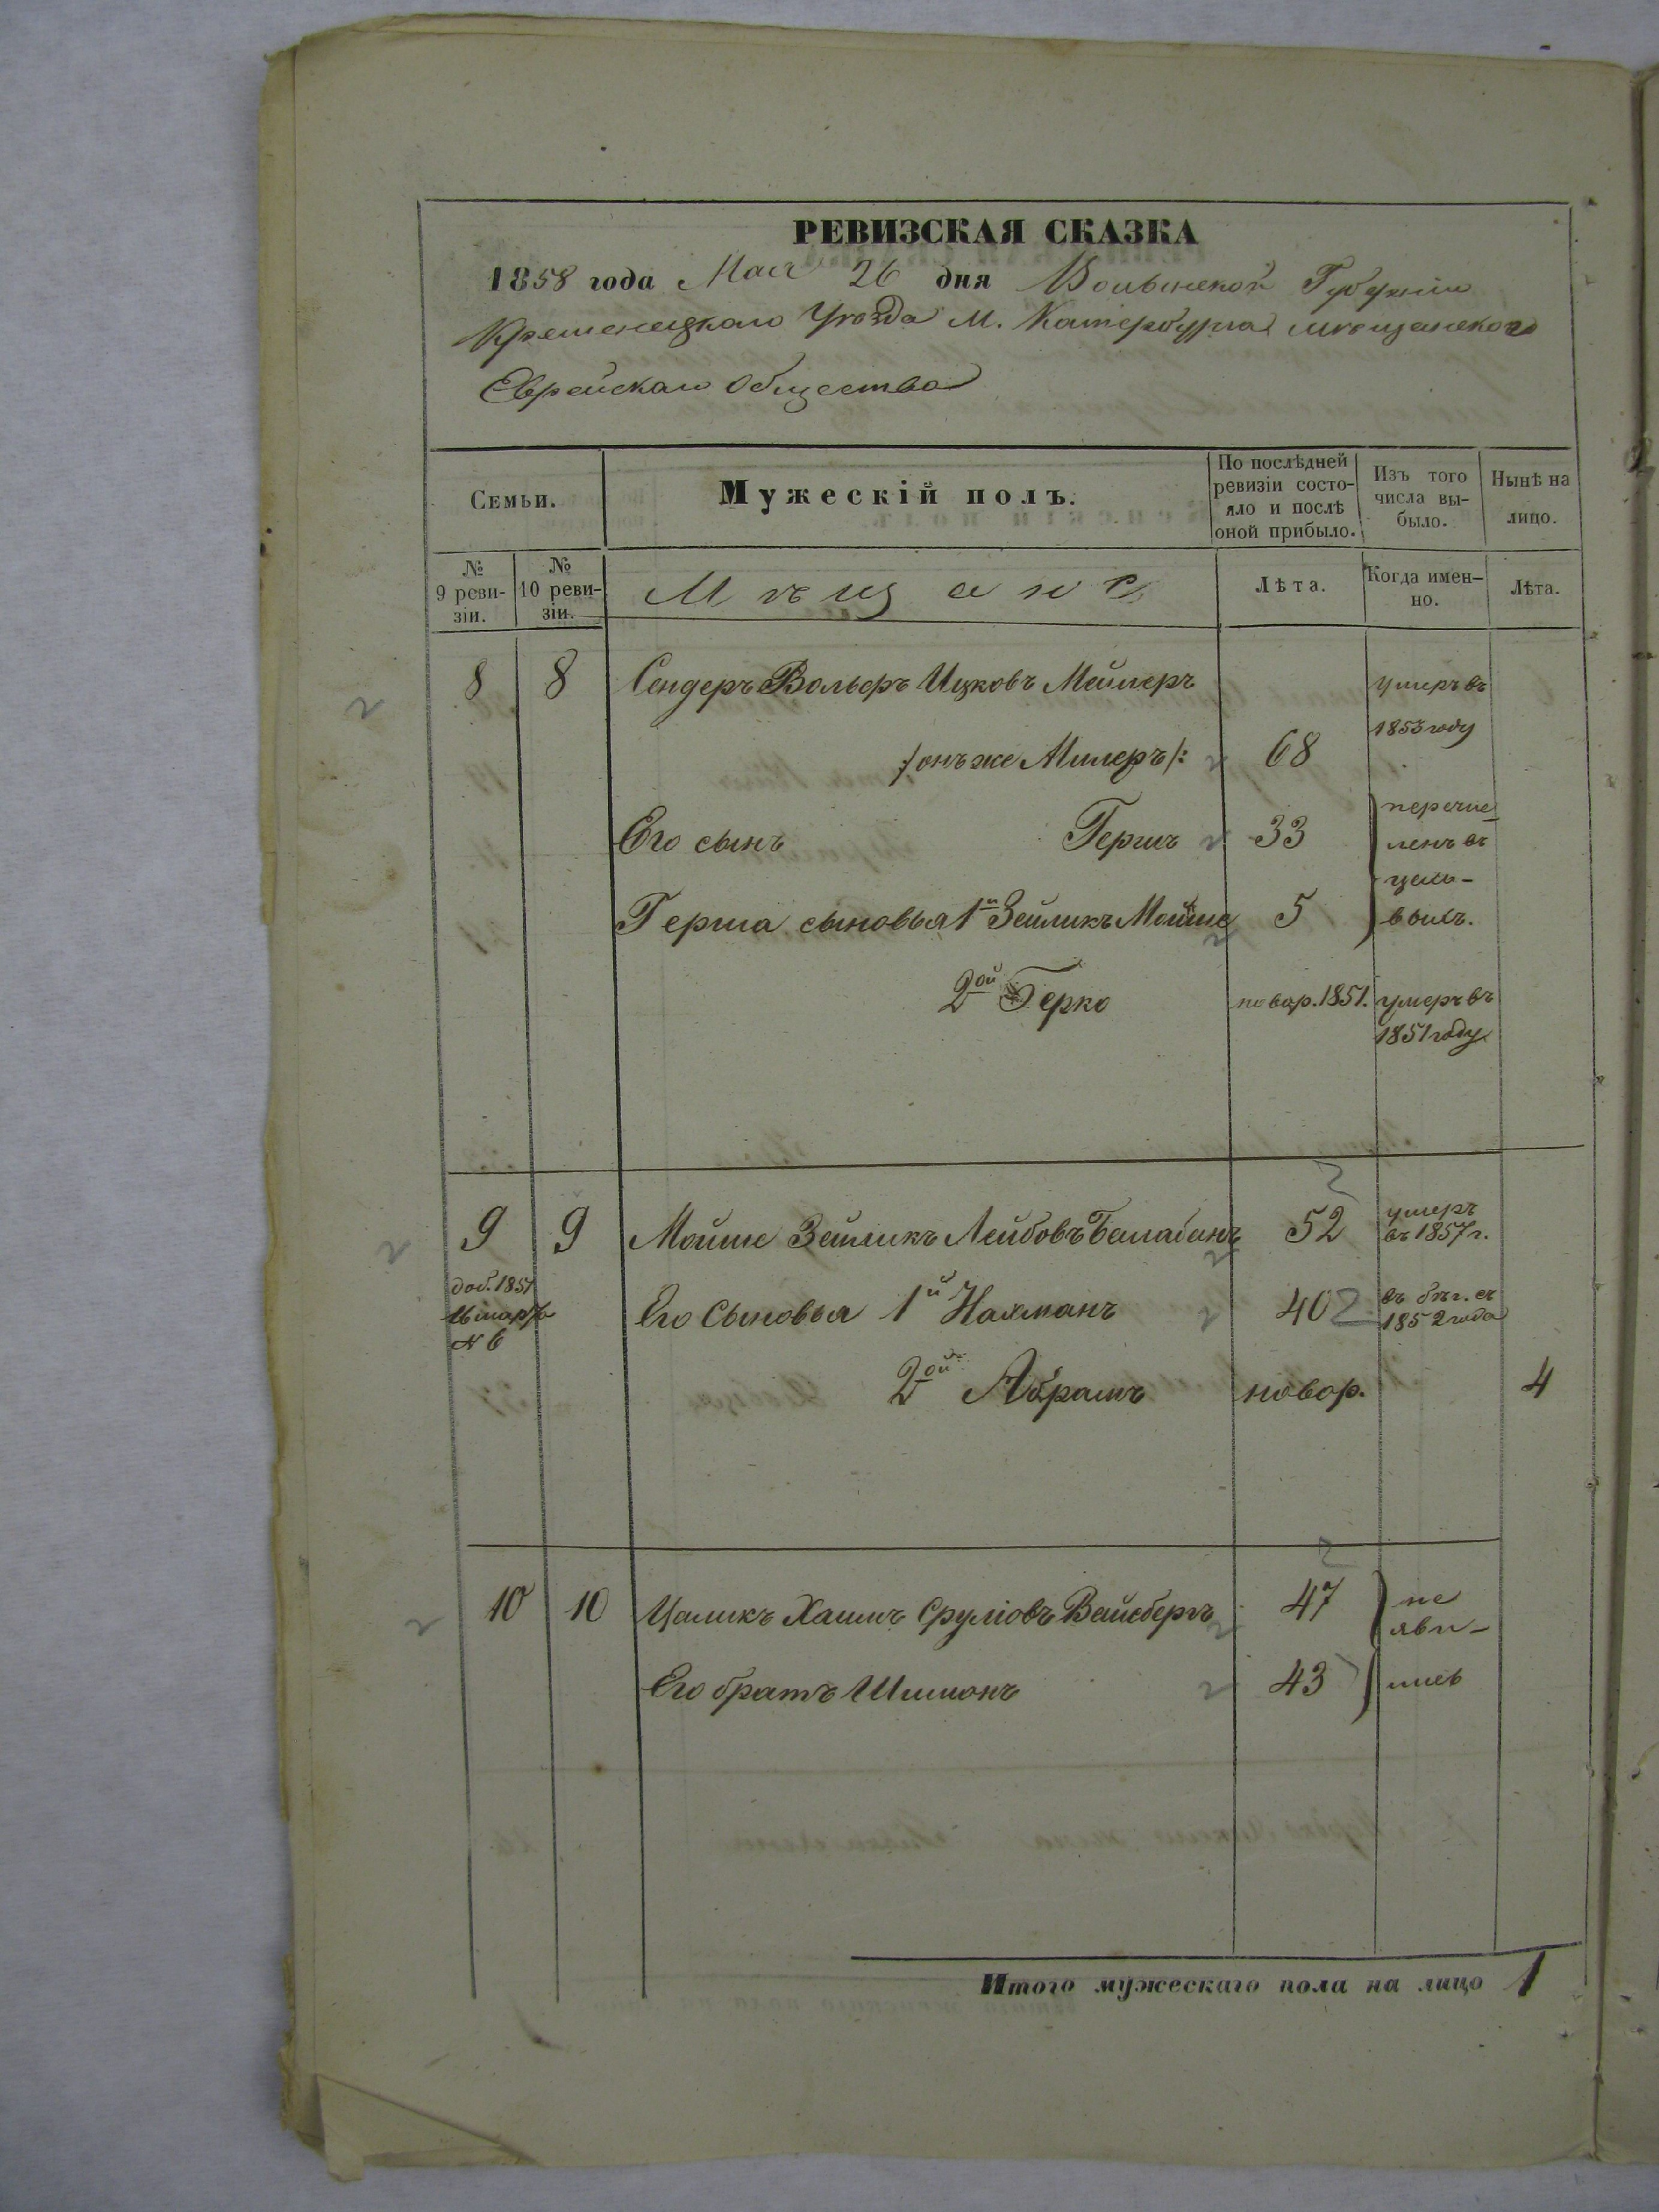 РЕВИЗСКАЯ СКАЗКА
1858 года Мая 26 дня Волынской Губерніи
Кременецкаго Уѣзда М. Катербурга мѣщанскаго
Еврейскаго Общества
Семьи.
Мужескій полъ.
По послѣдней ревизіи состо-
яло и послѣ оной прибыло.
Изъ того числа вы-
было.
Нынѣ на лицо.
№ 9 реви-
зіи.
№ 10 реви-
зіи.
Мѣщане
Лѣта.
Когда имен-
но.
Лѣта.
8 8 Сендеръ Вольфъ Ицковъ Мейлеръ умеръ въ
1853 году
/: онъ же Милеръ /: 68
Его сынъ Гершъ 33 перечис
ленъ въ
Герша сыновья 1й Зейликъ Мойше 5 цехо-
выхъ.
2ой Берко новор. 1851. умеръ въ
1851 году
9 9 Мойше Зейликъ Лейбовъ Балабанъ 52 умеръ
въ 1857 г.
доб. 1851
16 марта
№ 6
Его Сыновья 1й Нахманъ 40 въ бѣг. съ
1852 года
2ой Абрамъ новор. 4
10 10 Цаликъ Хаимъ Сруліовъ Вейсбергъ 47 не
яви-
Его братъ Шимонъ 43 лись
Итого мужескаго пола на лицо 1